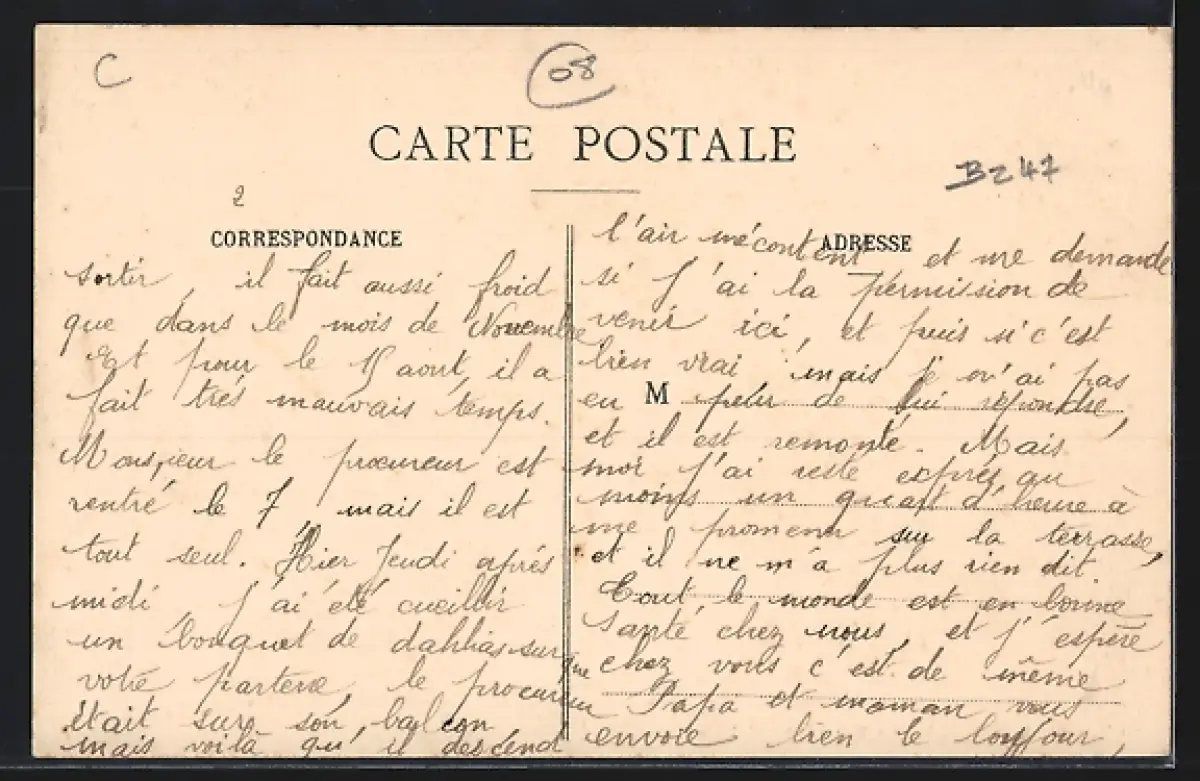 C
08
CARTE POSTALE
Bz 47
2
CORRESPONDANCE
sortir, il fait aussi froid
que dans le mois de Novembre
Et pour le 15 aout, il a
fait très mauvais temps.
Monsieur le procureur est
rentré le 7, mais il est
tout seul. Hier Jeudi après
midi, j'ai été cueillir
un bouquet de dahlias sur
votre parterre, le procureur
était sure son balcon
mais voilà qu'il descend
ADRESSE
M
l'air mécontent et me demande
si j'ai la permission de
venir ici, et puis si c'est
bien vrai mais je n'ai pas
eu peur de lui répondre,
et il est remonté. Mais
moi j'ai resté exprès, au
moins un quart d'heure à
me promener sur la terrasse,
et il ne m'a plus rien dit.
Tout le monde est en bonne
santé chez nous, et j'espère
que chez vous c'est de même
Papa et maman vous
envoie bien le bonjour,